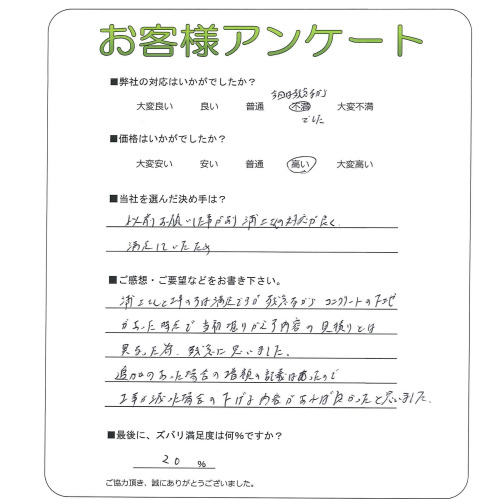 お客様アンケート
■弊社の対応はいかがでしたか?
今回は残念ながら
大変良い 良い 普通 不満 大変不満
でした
■価格はいかがでしたか?
大変安い 安い 普通 高い 大変高い
■当社を選んだ決め手は?
以前お願いした事があり 浦上さんの対応が良く、
満足していたため
■ご感想・ご要望などをお書き下さい。
浦上さんと工事の方は満足ですが 残念ながら コンクリートの下地
があった時点で当初
内容の見積りとは
異なった為、残念に思いました。
追加のあった場合の増額の記載はあったので
工事が減った場合の下げる内容があれば良かったと思いました。
■最後に、ズバリ満足度は何%ですか?
20 %
ご協力頂き、誠にありがとうございました。